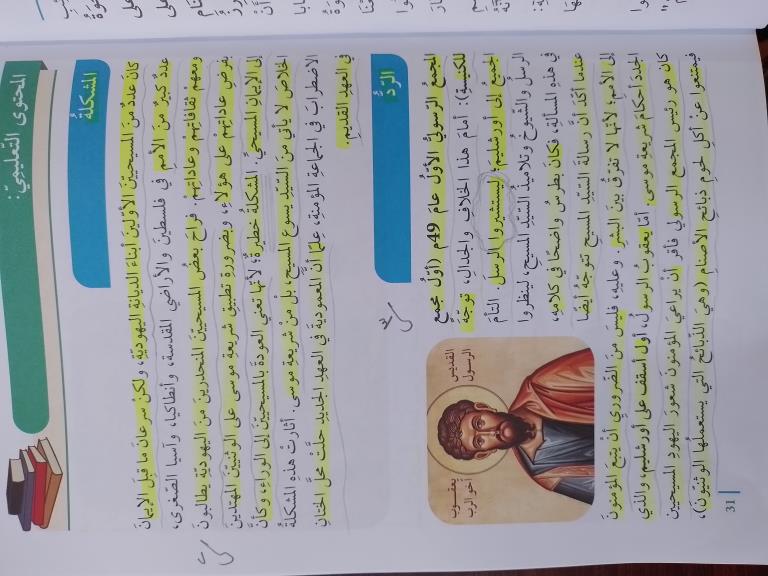 المحتوى التعليميّ:
المشكلة
كانَ عددٌ منَ المسيحيّينَ الأوّلينَ أبناءَ الديانةِ اليهوديّةِ، ولكنْ سرعانَ ما قبِلَ الإيمانَ
عددٌ كبيرٌ منَ الأممِ في فلسطينَ والأراضي المقدسة، وأنطاكيا، وآسيا الصّغرى،
ومعهُم ثقافاتِهِم وعاداتِهِم. فراحَ بعضُ المسيحيّينَ المنحدرينَ منَ اليهوديّةِ يطالبونَ
بفرضِ عاداتِهِم على هؤلاءِ، وبضرورةِ تطبيقِ شريعةِ موسى على الوثنيّينَ المهتدينَ
إلى الإيمانِ المسيحيِّ. المشكلةُ خطيرةٌ؛ لأنّها تعني العودةَ بالمسيحيّينَ إلى الوراءِ، وكأنَّ
الخلاصَ لا يأتي منَ السّيّدِ يسوعَ المسيحِ، بلْ منْ شريعةِ موسى. أثارتْ هذهِ المشكلةُ
الاضطرابَ في الجماعةِ المؤمنةِ، علمًا أنَّ المعموديّةَ في العهدِ الجديدِ حلّتْ محلَّ الختانِ
في العهدِ القديمِ.
الرّدُّ
المجمعُ الرسوليُّ الأوّلُ عامَ 49م (أوّلُ مجمعٍ
للكنيسةِ): أمامَ هذا الخلافِ والجدالِ، توجّهَ
الجميعُ إلى أورشليمَ ليستشيروا الرسلَ. التأمَ
الرسلُ والشّيوخُ وتلاميذُ السّيّدِ المسيحِ، لينظروا
في هذهِ المسألةِ، فكانَ بطرسُ واضحًا في كلامِهِ،
عندما أكّدَ أنَّ رسالةَ السّيّدِ المسيحِ تتوجّهُ أيضًا
القديس يعقوب
الرسول أخو الرب
إلى الأممِ؛ لأنّها لا تفرّقُ بينَ البشرِ. وعليهِ، فليسَ منَ الضّروريِّ أنْ يتبعَ المؤمنونَ
الجددُ أحكامَ شريعةِ موسى. أمّا يعقوبُ الرسولُ، أول أسقف على أورشليم، والذي
كان هو رئيس المجمع الرسولي فأقر أن يراعي المؤمنون شعور اليهود المسيحيين
فيمتنعوا عنْ أكلِ لحومِ ذبائحِ الأصنامِ (وهيَ الذّبائحُ التي يستعملُها الوثنيّونَ)،
31